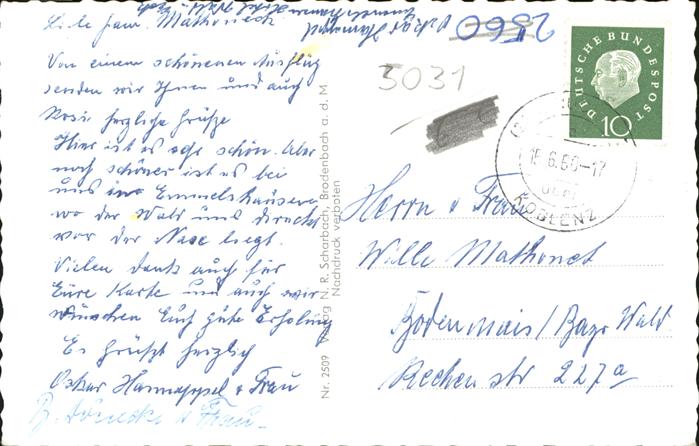 Von einem schönenen Ausflug
senden wir Ihnen und auch
Rosie herzliche Grüße
Hier ist es sehr schön. Aber
noch schöner ist es bei
uns in Emmelshausen
wo der Wald uns direckt
vor der Nase liegt.
Vielen dank auch für
Eure Karte und auch wir
wünschen Euch gute Erholung
Es grüßt herzlich
Oskar Hannappel u Frau
u Frau
2560
3031
DEUTSCHE BUNDESPOST
10
15.6.60-17
KOBLENZ
Nr. 2509 Verlag N. R. Scharbach, Brodenbach a. d. M
Nachdruck verboten
Herrn u Frau
Wille Mathonet
Bodenmais/Bayr Wald
Rechen str 227a